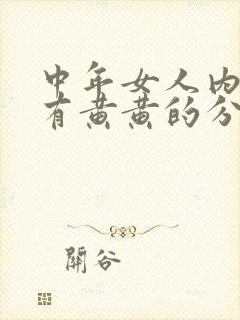 中年女人内
有黄黄的分
關谷